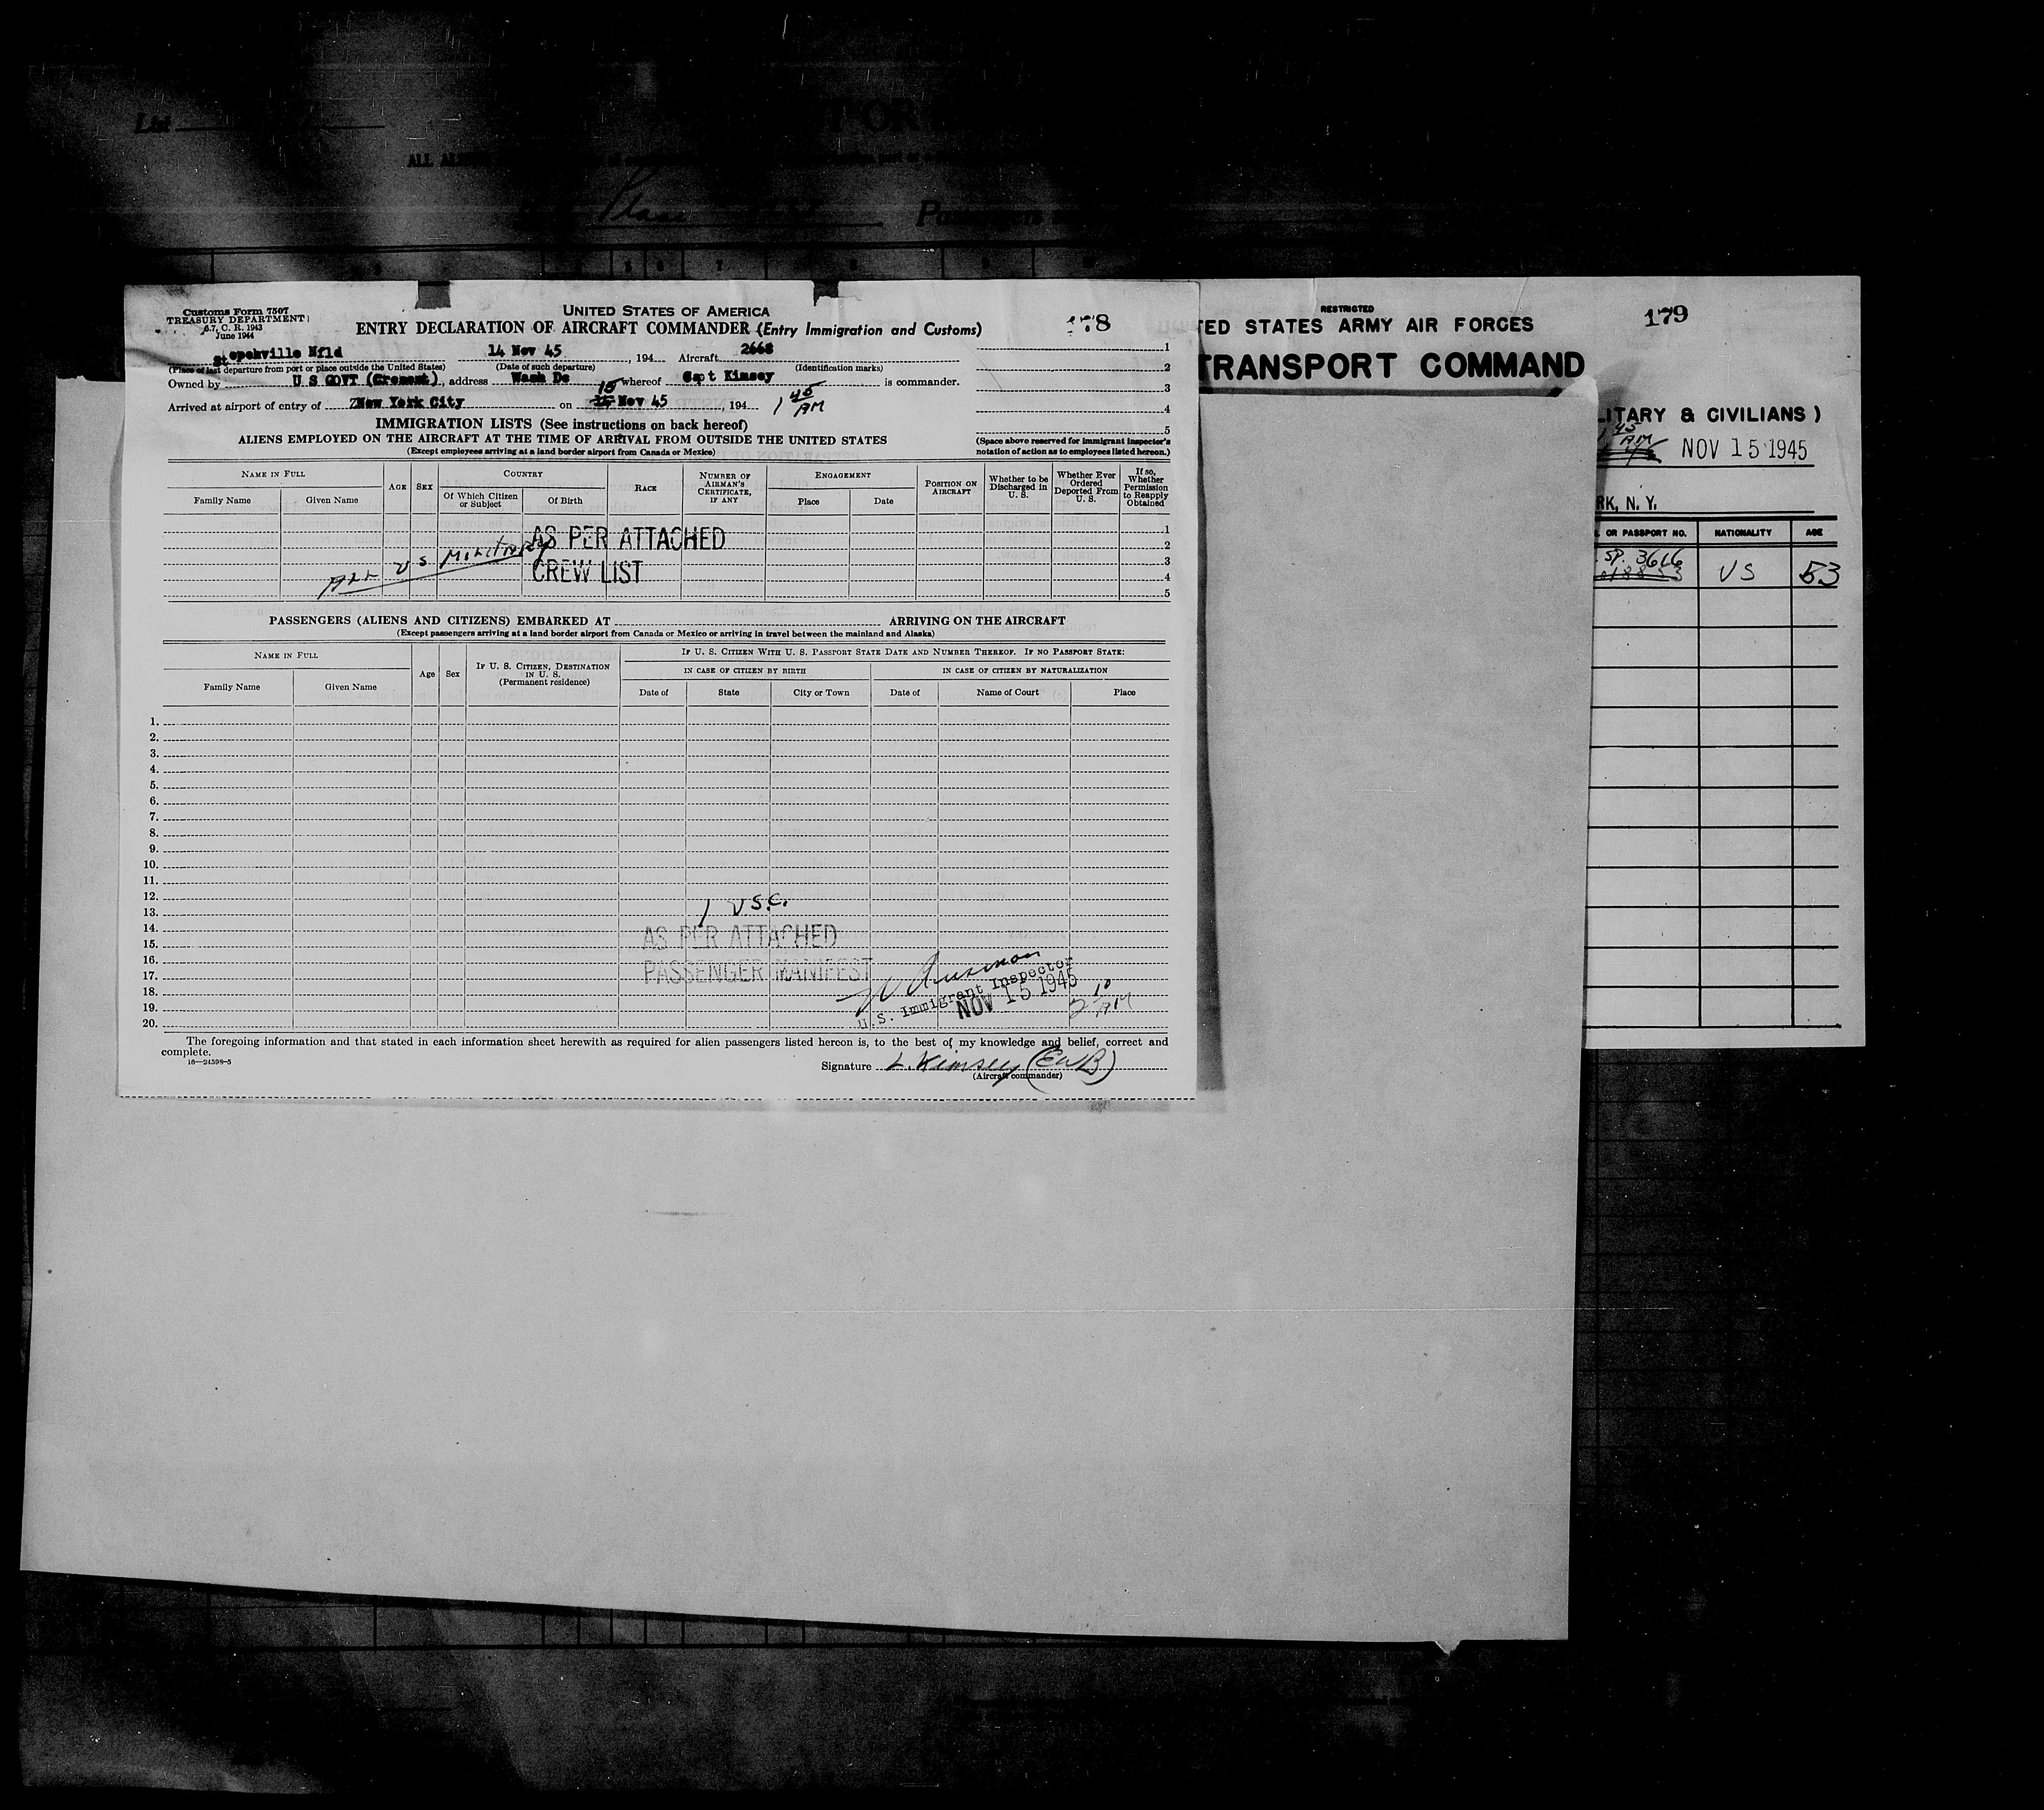 List
ALL ALIENS
Plane
Passengers
Customs Form 7507
TREASURY DEPARTMENT
6.7, C. R. 1943
June 1944
UNITED STATES OF AMERICA
ENTRY DECLARATION OF AIRCRAFT COMMANDER (Entry Immigration and Customs)
178
Stepehville Nfld 14 Nov 45, 194 Aircraft 2668
(Place of last departure from port or place outside the United States) (Date of such departure) (Identification marks)
Owned by U S GOVT, address Wash Dc whereof Capt Kimsey is commander.
Arrived at airport of entry of ZNew York City on 15 Nov 45, 194 1 45 AM
1
2
3
4
5
(Space above reserved for immigrant inspector's
notation of action as to employees listed hereon.)
IMMIGRATION LISTS (See instructions on back hereof)
ALIENS EMPLOYED ON THE AIRCRAFT AT THE TIME OF ARRIVAL FROM OUTSIDE THE UNITED STATES
(Except employees arriving at a land border airport from Canada or Mexico)
NAME IN FULL
Family Name
Given Name
AGE
SEX
COUNTRY
Of Which Citizen
or Subject
Of Birth
RACE
NUMBER OF
AIRMAN'S
CERTIFICATE,
IF ANY
ENGAGEMENT
Place
Date
POSITION ON
AIRCRAFT
Whether to be
Discharged in
U. S.
Whether Ever
Ordered
Deported From
U. S.
If so,
Whether
Permission
to Reapply
Obtained
1
2
3
4
5
AS PER ATTACHED
CREW LIST
ALL U S MILITARY
PASSENGERS (ALIENS AND CITIZENS) EMBARKED AT ARRIVING ON THE AIRCRAFT
(Except passengers arriving at a land border airport from Canada or Mexico or arriving in travel between the mainland and Alaska)
NAME IN FULL
Family Name
Given Name
Age
Sex
IF U. S. CITIZEN, DESTINATION
IN U. S.
(Permanent residence)
IF U. S. CITIZEN WITH U. S. PASSPORT STATE DATE AND NUMBER THEREOF. IF NO PASSPORT STATE:
IN CASE OF CITIZEN BY BIRTH
IN CASE OF CITIZEN BY NATURALIZATION
Date of
State
City or Town
Date of
Name of Court
Place
1.
2.
3.
4.
5.
6.
7.
8.
9.
10.
11.
12.
13.
14.
15.
16.
17.
18.
19.
20.
1 U.S.C.
AS PER ATTACHED
PASSENGER MANIFEST
U.S. Immigrant Inspector
NOV 15 1945
2 10 AM
The foregoing information and that stated in each information sheet herewith as required for alien passengers listed hereon is, to the best of my knowledge and belief, correct and
complete.
16—24598-5
Signature L. Kimsey (EWB)
(Aircraft commander)
RESTRICTED
179
TED STATES ARMY AIR FORCES
TRANSPORT COMMAND
LITARY & CIVILIANS )
1 45 AM
NOV 15 1945
RK, N. Y.
OR PASSPORT NO.
NATIONALITY
AGE
SP. 3616
US
53